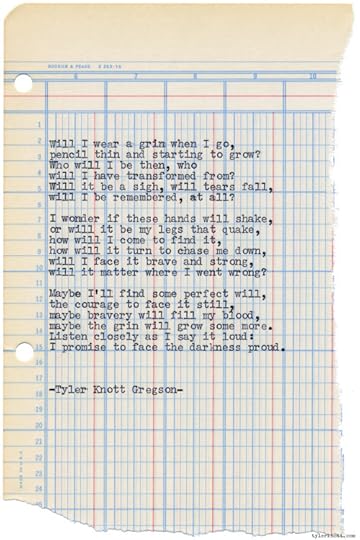 BOORUM & PEASE
6 7 8 9 10
1
2
3
4
5
6
7
8
9
10
11
12
13
14
15
16
17
18
19
20
21
22
23
24
Will I wear a grin when I go,
pencil thin and starting to grow?
Who will I be then, who
will I have transformed from?
Will it be a sigh, will tears fall,
will I be remembered, at all?
I wonder if these hands will shake,
or will it be my legs that quake,
how will I come to find it,
how will it turn to chase me down,
will I face it brave and strong,
will it matter where I went wrong?
Maybe I'll find some perfect will,
the courage to face it still,
maybe bravery will fill my blood,
maybe the grin will grow some more.
Listen closely as I say it loud:
I promise to face the darkness proud.
-Tyler Knott Gregson-
MADE IN U.S.A.